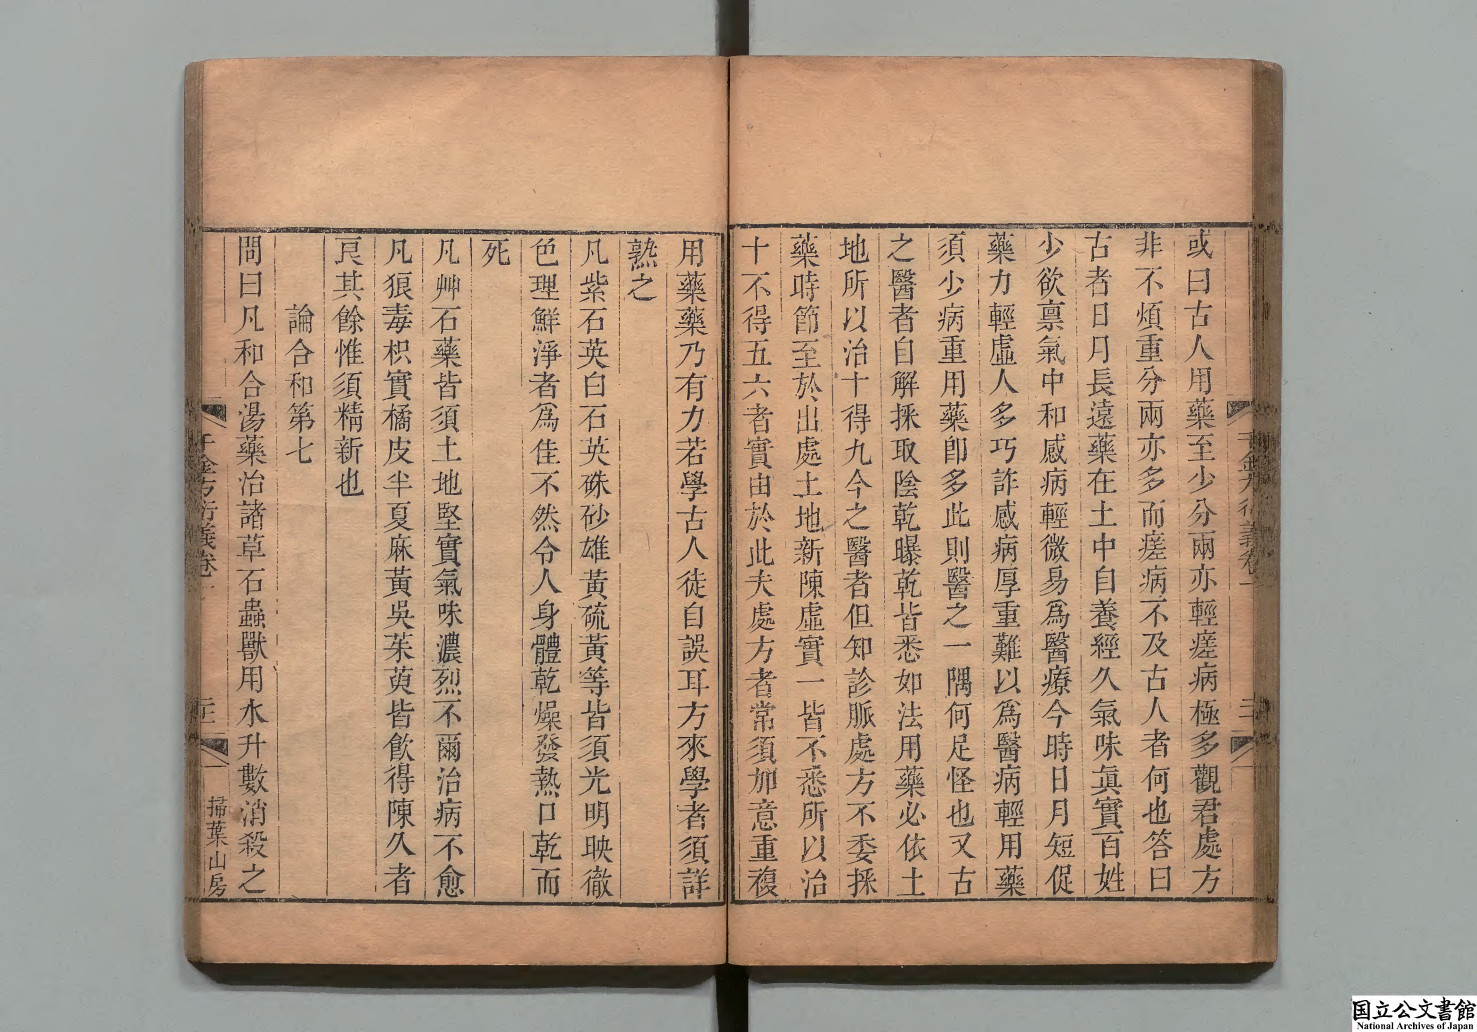 或曰古人用藥至少分兩亦輕瘥病極多觀君處方
非不煩重分兩亦多而瘥病不及古人者何也答曰
古者日月長遠藥在土中自養經久氣味眞實百姓
少欲禀氣中和感病輕微易爲醫療今時日月短促
藥力輕虛人多巧詐感病厚重難以爲醫病輕用藥
須少病重用藥卽多此則醫之一隅何足怪也又古
之醫者自解採取陰乾曝乾皆悉如法用藥必依土
地所以治十得九今之醫者但知診脈處方不委採
藥時節至於出處土地新陳虛實一皆不悉所以治
十不得五六者實由於此夫處方者常須加意重複
用藥藥乃有力若學古人徒自誤耳方來學者須詳
熟之
凡紫石英白石英硃砂雄黃硫黃等皆須光明映徹
色理鮮淨者爲佳不然令人身體乾燥發熱口乾而
死
凡艸石藥皆須土地堅實氣味濃烈不爾治病不愈
凡狼毒枳實橘皮半夏麻黃吳茱萸皆飮得陳久者
良其餘惟須精新也
論合和第七
問曰凡和合湯藥治諸草石蟲獸用水升數消殺之
千金方衍義卷一
掃葉山房
国立公文書館
National Archives of Japan